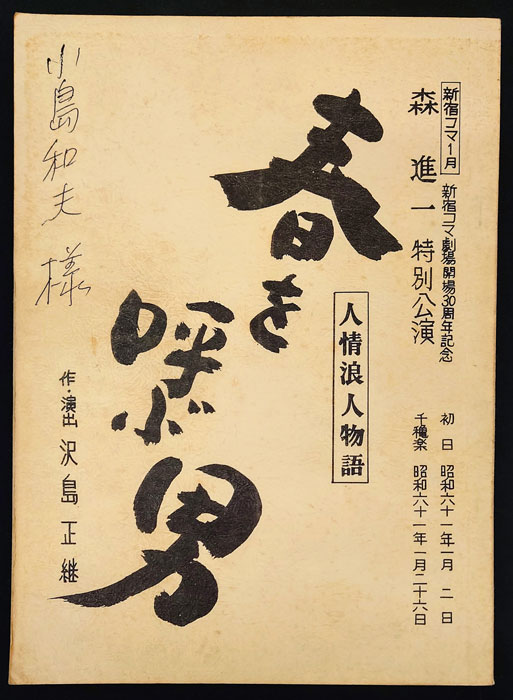 新宿コマ1月 新宿コマ劇場開場30周年記念
森進一特別公演
初日 昭和六十一年一月二日
千穐楽 昭和六十一年一月二十六日
人情浪人物語
春を呼ぶ男
作・演出 沢島正継
小島和夫様